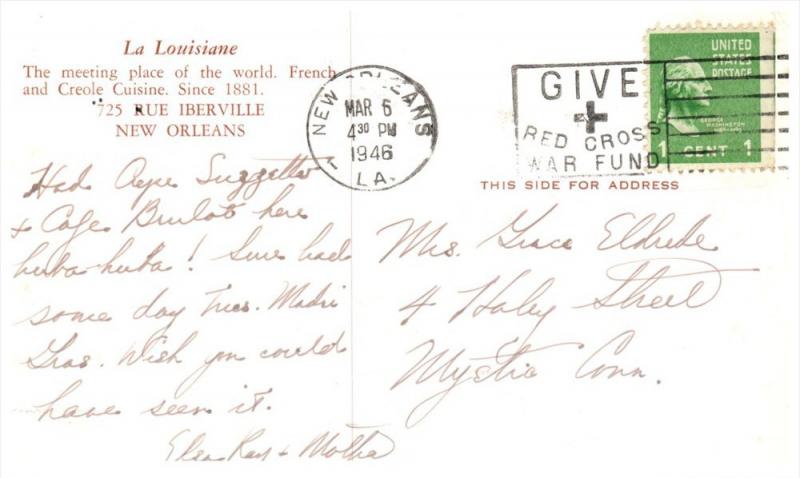 La Louisiane
The meeting place of the world. French
and Creole Cuisine. Since 1881.
725 RUE IBERVILLE
NEW ORLEANS
NEW ORLEANS
MAR 6
4 30 PM
1946
LA.
GIVE
RED CROSS
WAR FUND
UNITED
STATES
POSTAGE
GEORGE
WASHINGTON
1 CENT 1
THIS SIDE FOR ADDRESS
Had Crepe Suzzettes
+ Cafe Brulot here
huba-huba! Sure had
some day Tues. Madri
Gras. Wish you could
have seen it.
+ Motha
Mrs. Grace Eldrede
4 Haley Street
Mystic Conn.